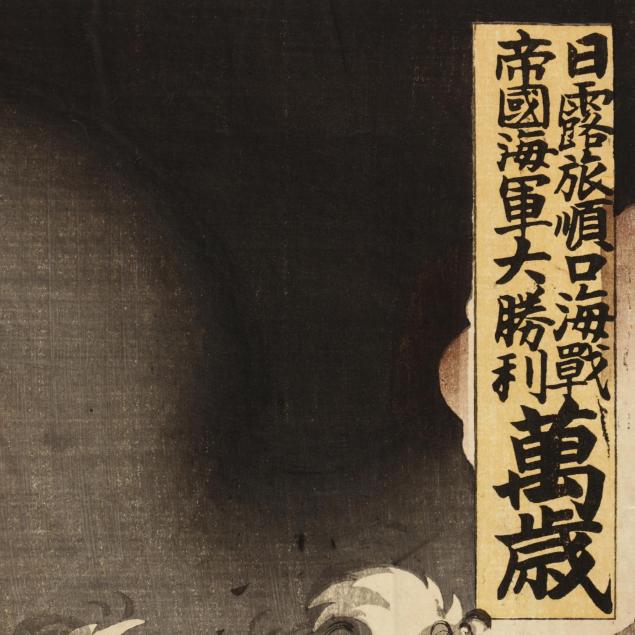 日露旅順口海戰
帝國海軍大勝利
萬歳